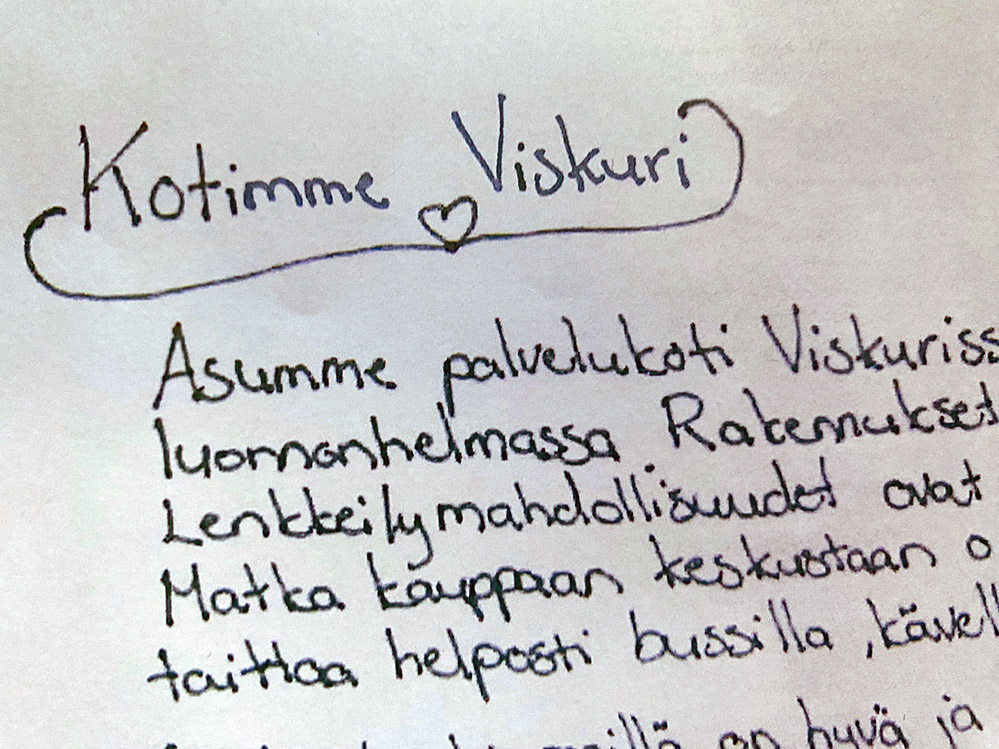 Kotimme Viskuri
Asumme palvelukoti Viskuriss
luonnonhelmassa Rakennukset
Lenkkeilymahdollisuudet ovat
Matka kauppaan keskustaan o
taittaa helposti bussilla, kävell
meillä on hyvä ja